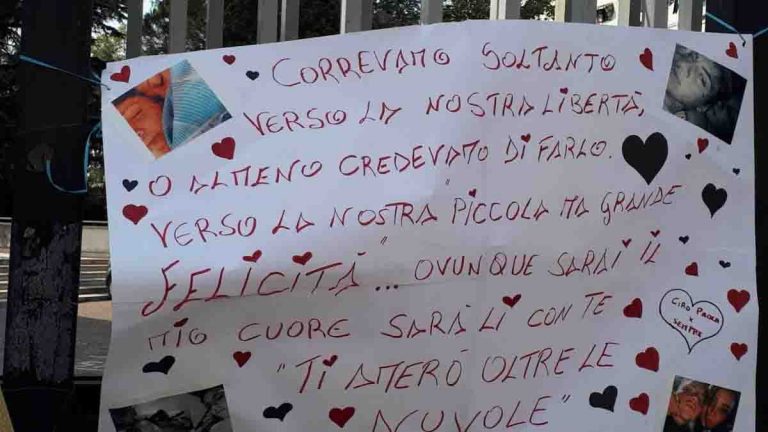 CORREVAMO SOLTANTO
VERSO LA NOSTRA LIBERTÀ,
O ALMENO CREDEVAMO DI FARLO.
VERSO LA NOSTRA "PICCOLA MA GRANDE
FELICITÀ"... OVUNQUE SARAI IL
MIO CUORE SARÀ LÌ CON TE
"TI AMERÒ OLTRE LE
NUVOLE"
CIRO PAOLA
X
SEMPRE